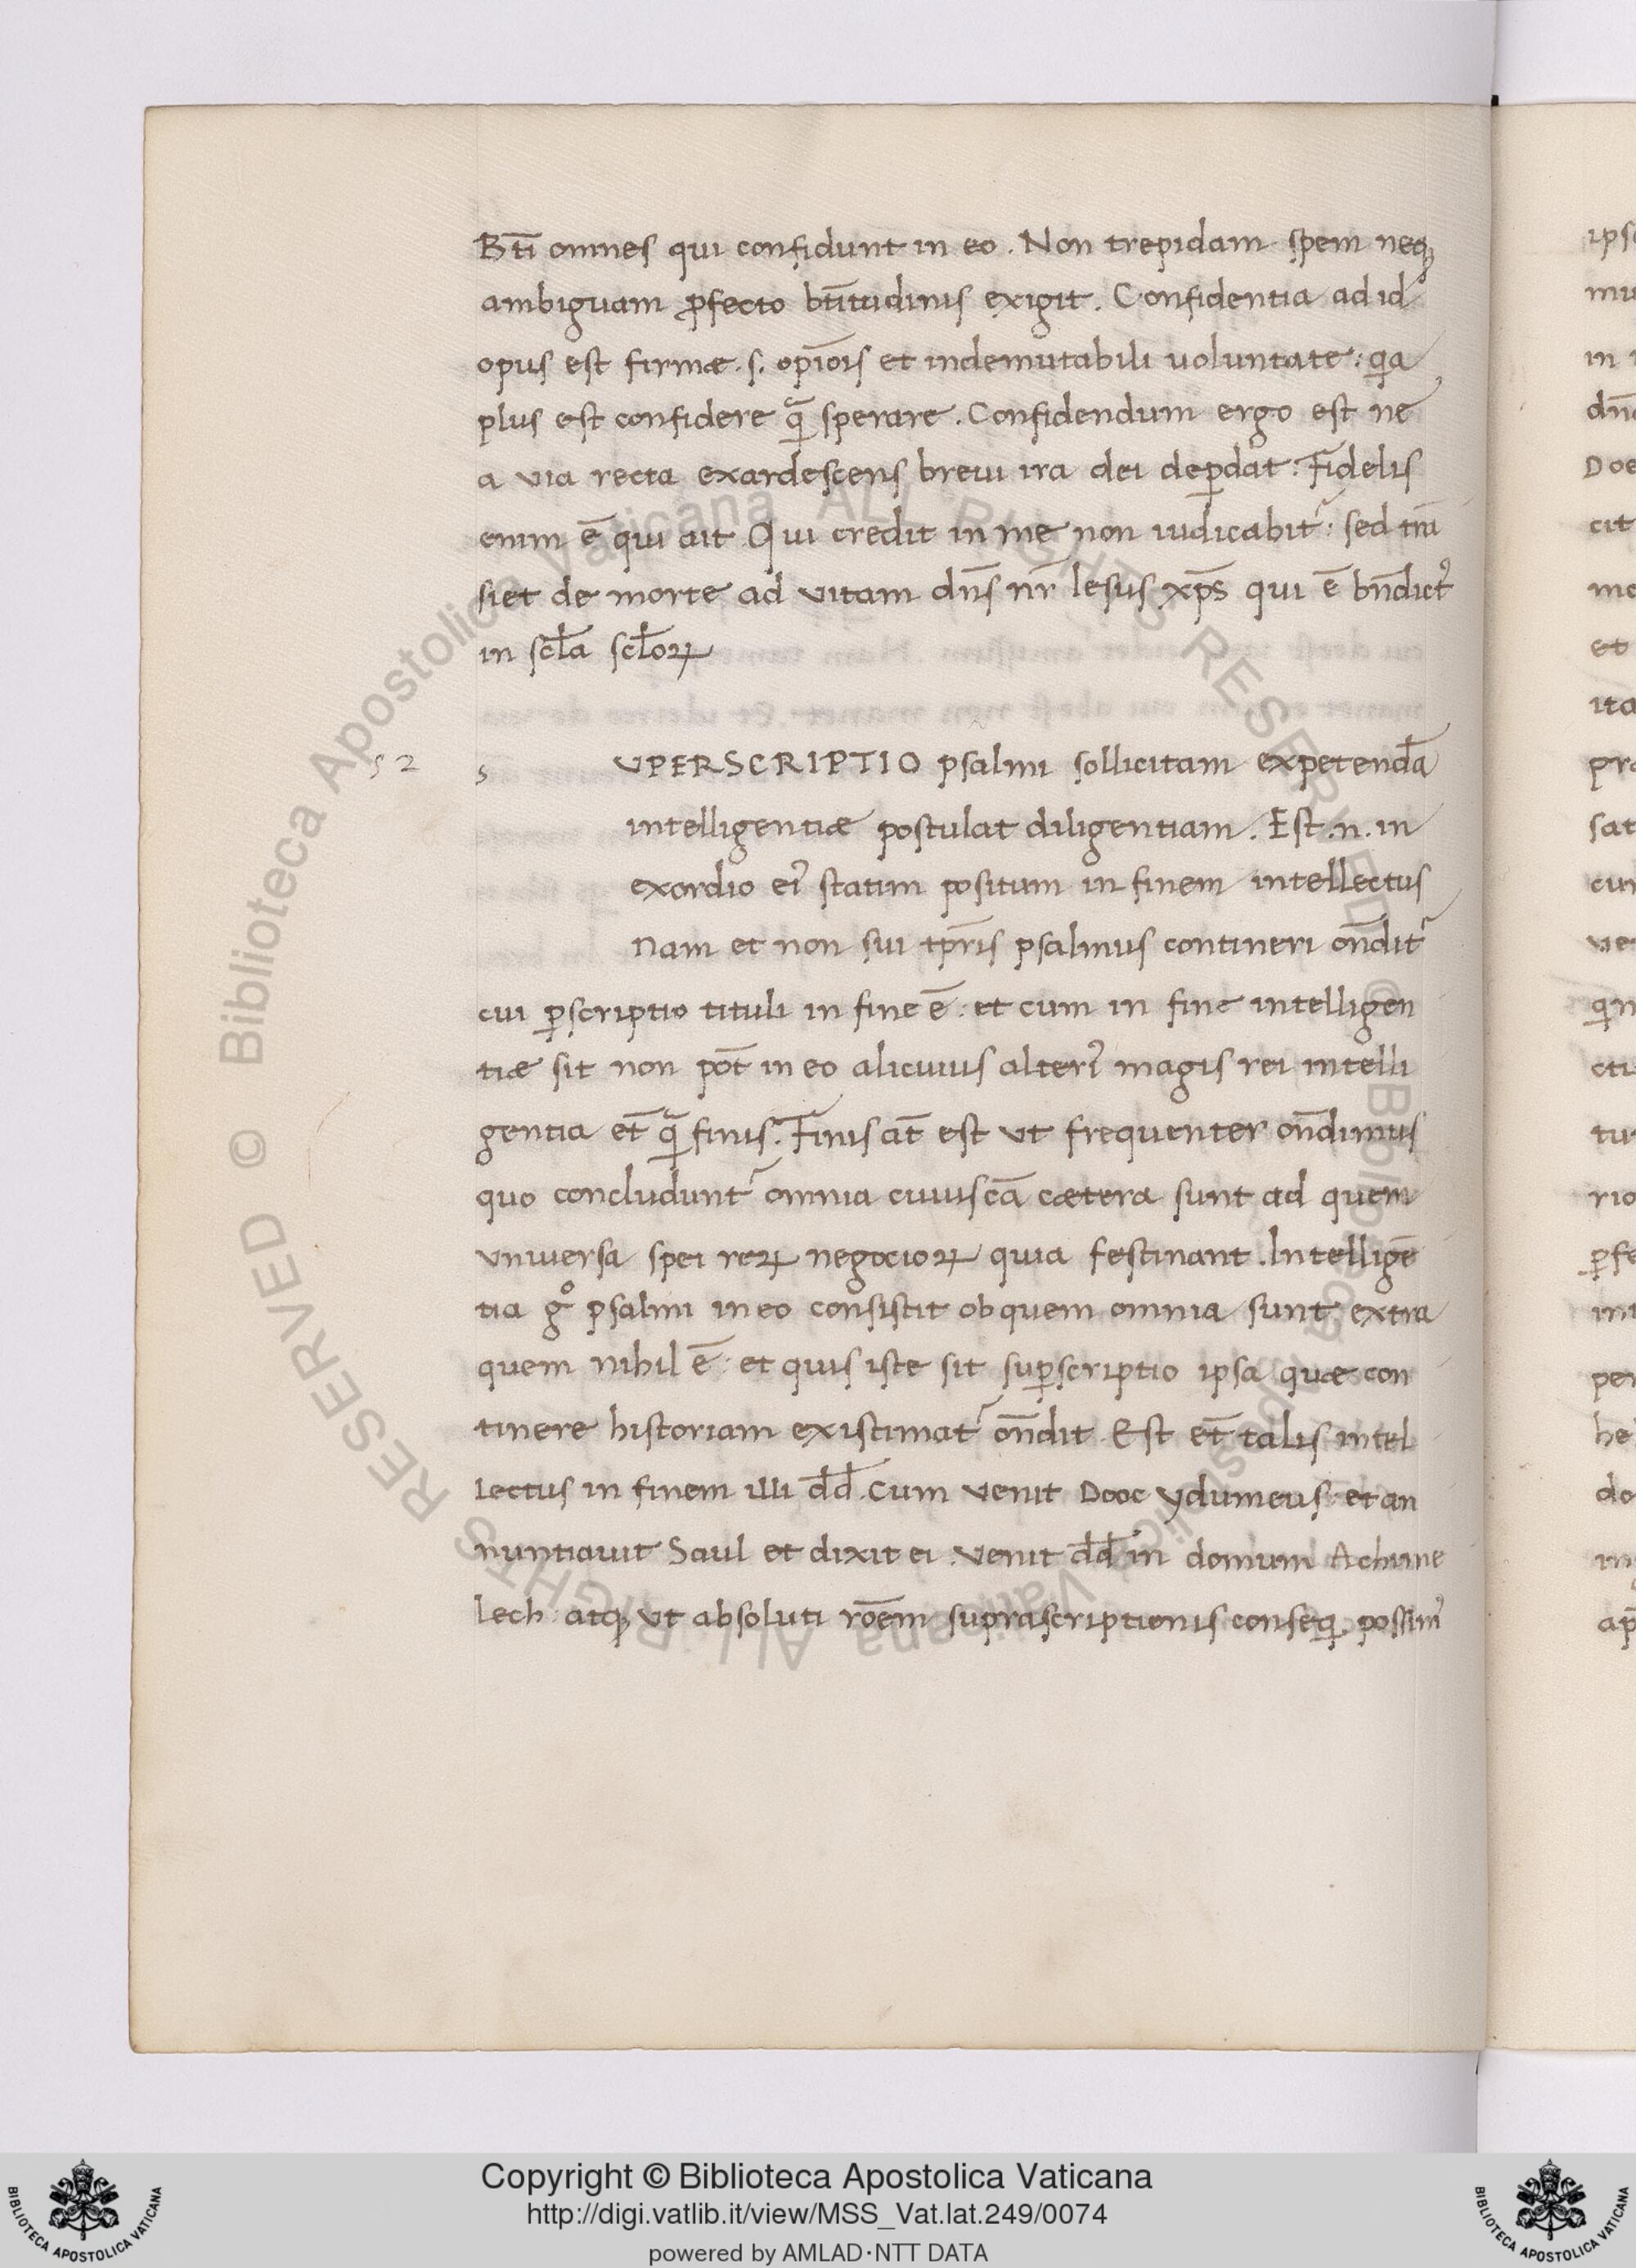 Bt̄i omnes qui confidunt in eo. Non trepidam spem neqꝫ
ambiguam ꝓfecto bt̄itudinis exigit. Confidentia ad id
opus est firmæ .s. opīois et indemutabili voluntate: qia
plus est confidere qᷓ sperare. Confidendum ergo est ne
a via recta exardescens brevi ira dei deꝑdat: Fidelis
enim ē qui ait Qui credit in me non iudicabit᷑: sed trā
siet de morte ad vitam dn̄s nr̄ Iesus xp̄s qui ē bn̄dict᷒
in scl̄a scl̄oꝝ
52 s UPERSCRIPTIO psalmi sollicitam expetendā
intelligentiæ postulat diligentiam. Est .n. in
exordio ei᷒ statim positum in finem intellectus
nam et non sui tp̄ris psalmus contineri on̄dit᷑
cui ꝑscriptio tituli in fine ē: et cum in fine intelligen
tiæ sit non pot̄ in eo alicuius alteri᷒ magis rei intelli
gentia et̄ qᷓ finis. Finis at̄ est ut frequenter on̄dimus
quo concludunt᷑ omnia cuius cā cætera sunt ad quem
universa spei reꝝ negocioꝝ quia festinant. Intelligē
tia gͦ psalmi in eo consistit ob quem omnia sunt extra
quem nihil ē: et quis iste sit suꝑscriptio ipsa quæ con
tinere historiam existimat᷑ on̄dit. Est et̄ talis intel
lectus in finem illi dd̄. Cum venit Dooc ydumeus: et an
nuntiavit Saul et dixit ei venit dd̄ in domum Achime
lech: atqꝫ ut absoluti rōem suprascriptionis conseqi possim᷒
ips
mu
in
dn̄
Doe
cit
mo
et
ita
pro
sat
cum
ve
qin
ctu
tur
rio
ꝑfe
int
per
he
do
in
ap
© Biblioteca Apostolica Vaticana ALL RIGHTS RESERVED © Biblioteca Apostolica Vaticana ALL RIGHTS RESERVED
BIBLIOTECA APOSTOLICA VATICANA
Copyright © Biblioteca Apostolica Vaticana
http://digi.vatlib.it/view/MSS_Vat.lat.249/0074
powered by AMLAD·NTT DATA
BIBLIOTECA APOSTOLICA VATICANA